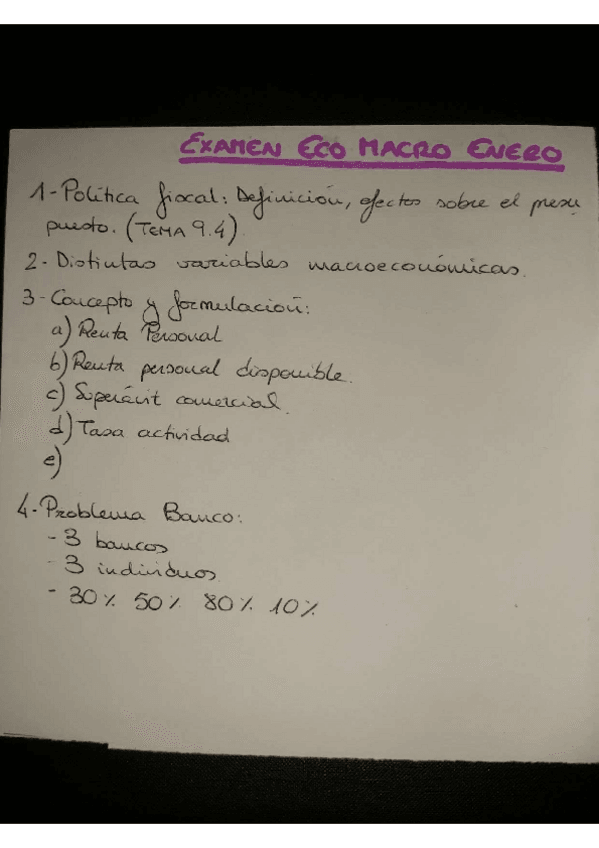 EXAMEN ECO MACRO ENERO
1-Política fiscal: Definición, efectos sobre el presu
puesto. (TEMA 9.4)
2-Distintas variables macroeconómicas.
3-Concepto y formulación:
a) Renta Personal
b) Renta personal disponible.
c) Superávit comercial.
d) Tasa actividad
e)
4-Problema Banco:
- 3 bancos
- 3 individuos
- 30% 50% 80% 10%